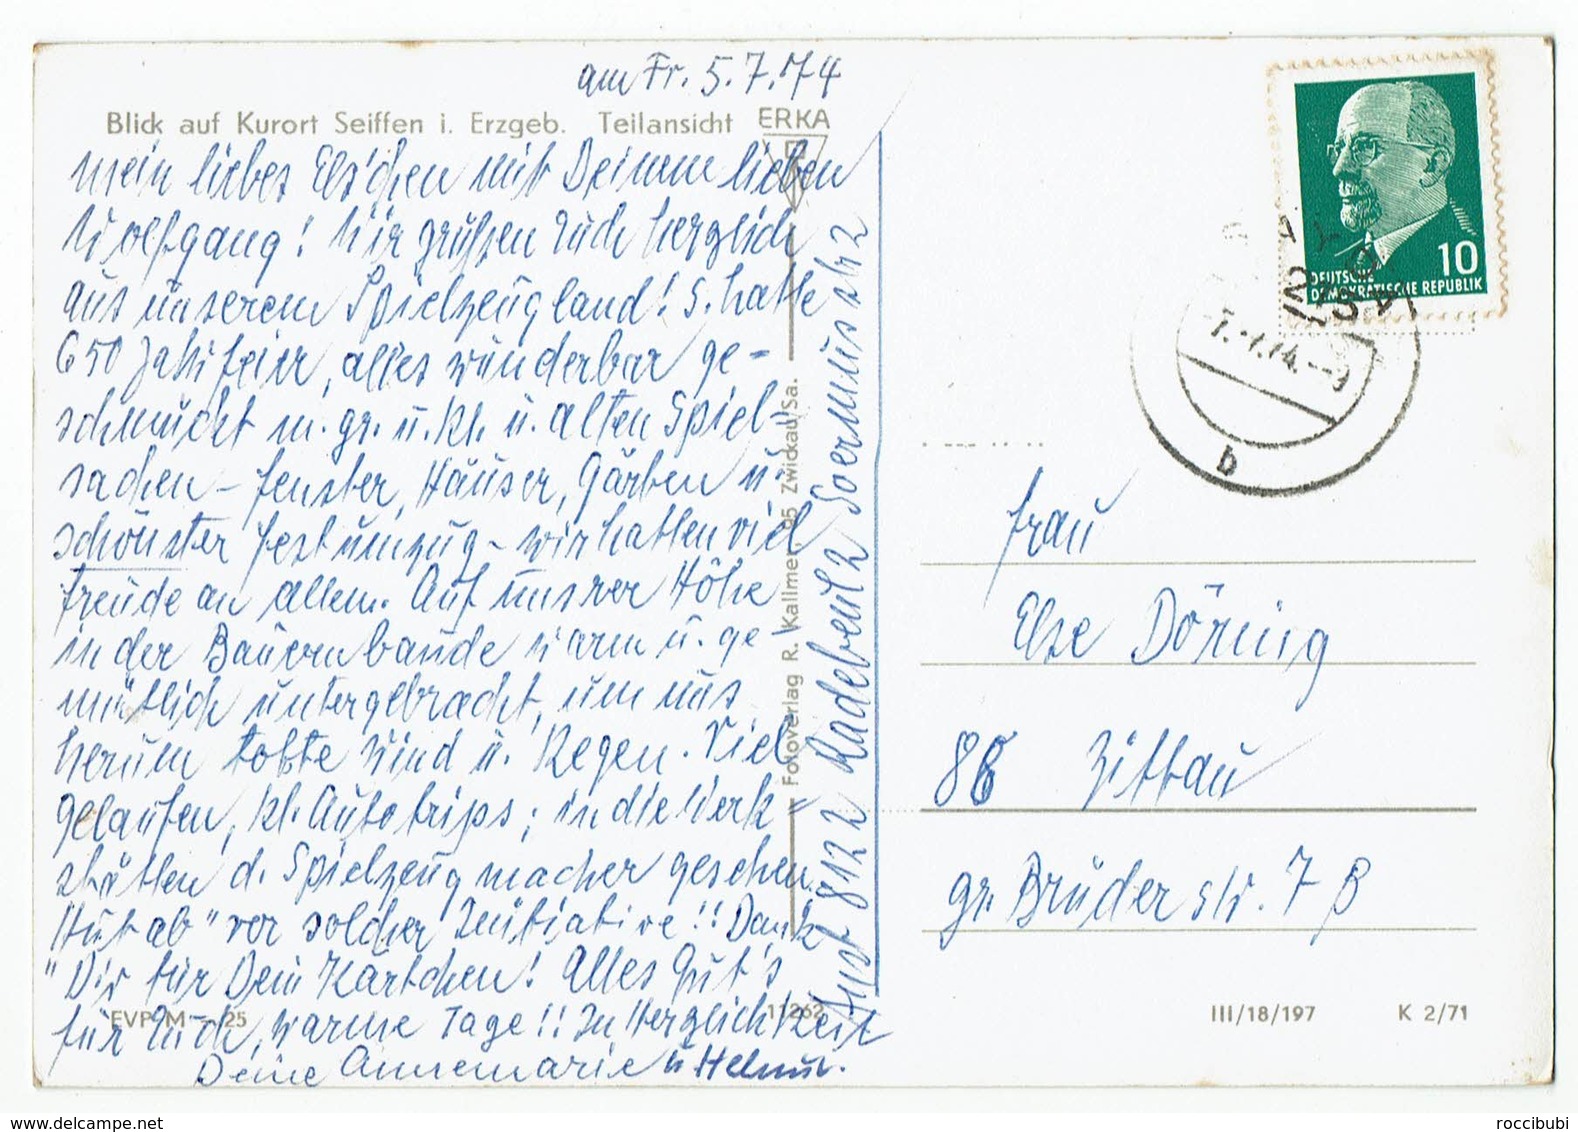 am Fr. 5.7.74
Blick auf Kurort Seiffen i. Erzgeb. Teilansicht
ERKA
mein liebes Els'chen mit Deinem lieben
Wolfgang! Wir grüßen Euch herzlich
aus unserem Spielzeugland! S. hatte
650 Jahrfeier, alles wunderbar ge-
schmückt m. gr. u. kl. u. alten Spiel-
sachen - Fenster, Häuser, Gärten u.
schönster Festumzug - wir hatten viel
Freude an allem. Auf unsrer Höhe
in der Bauernbaude warm u. ge
mütlich untergebracht, um uns
herum tobte Wind u. Regen. Viel
gelaufen, kl. Autotrips; in die Werk-
stätten d. Spielzeugmacher gesehen.
"Hut ab" vor solcher Initiative!! Dank
Dir für Dein Kärtchen! Alles Gut's
für Euch, warme Tage!! In Herzlichkeit
Deine Annemarie u Helmut.
8122 Radebeul 2
EVP M -,25
11262
Fotoverlag R. Kallmer, 95 Zwickau/Sa.
10
DEUTSCHE
DEMOKRATISCHE REPUBLIK
b
Frau
Else Döring
86 Zittau
gr. Brüderstr. 7 B
III/18/197 K 2/71
roccibubi